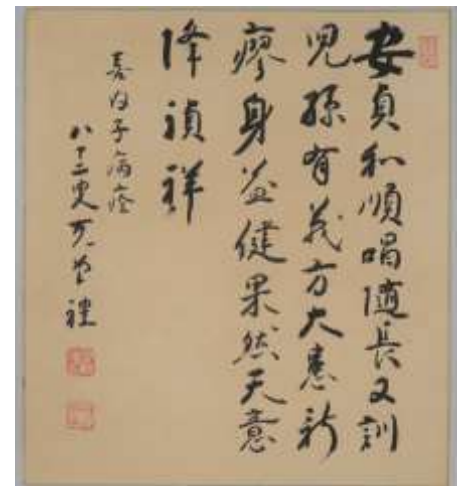 安貞和順唱隨長又訓
児孫有義方大患新
瘳身益健果然天意
降禎祥
喜内子病痊
八十二叟 禮